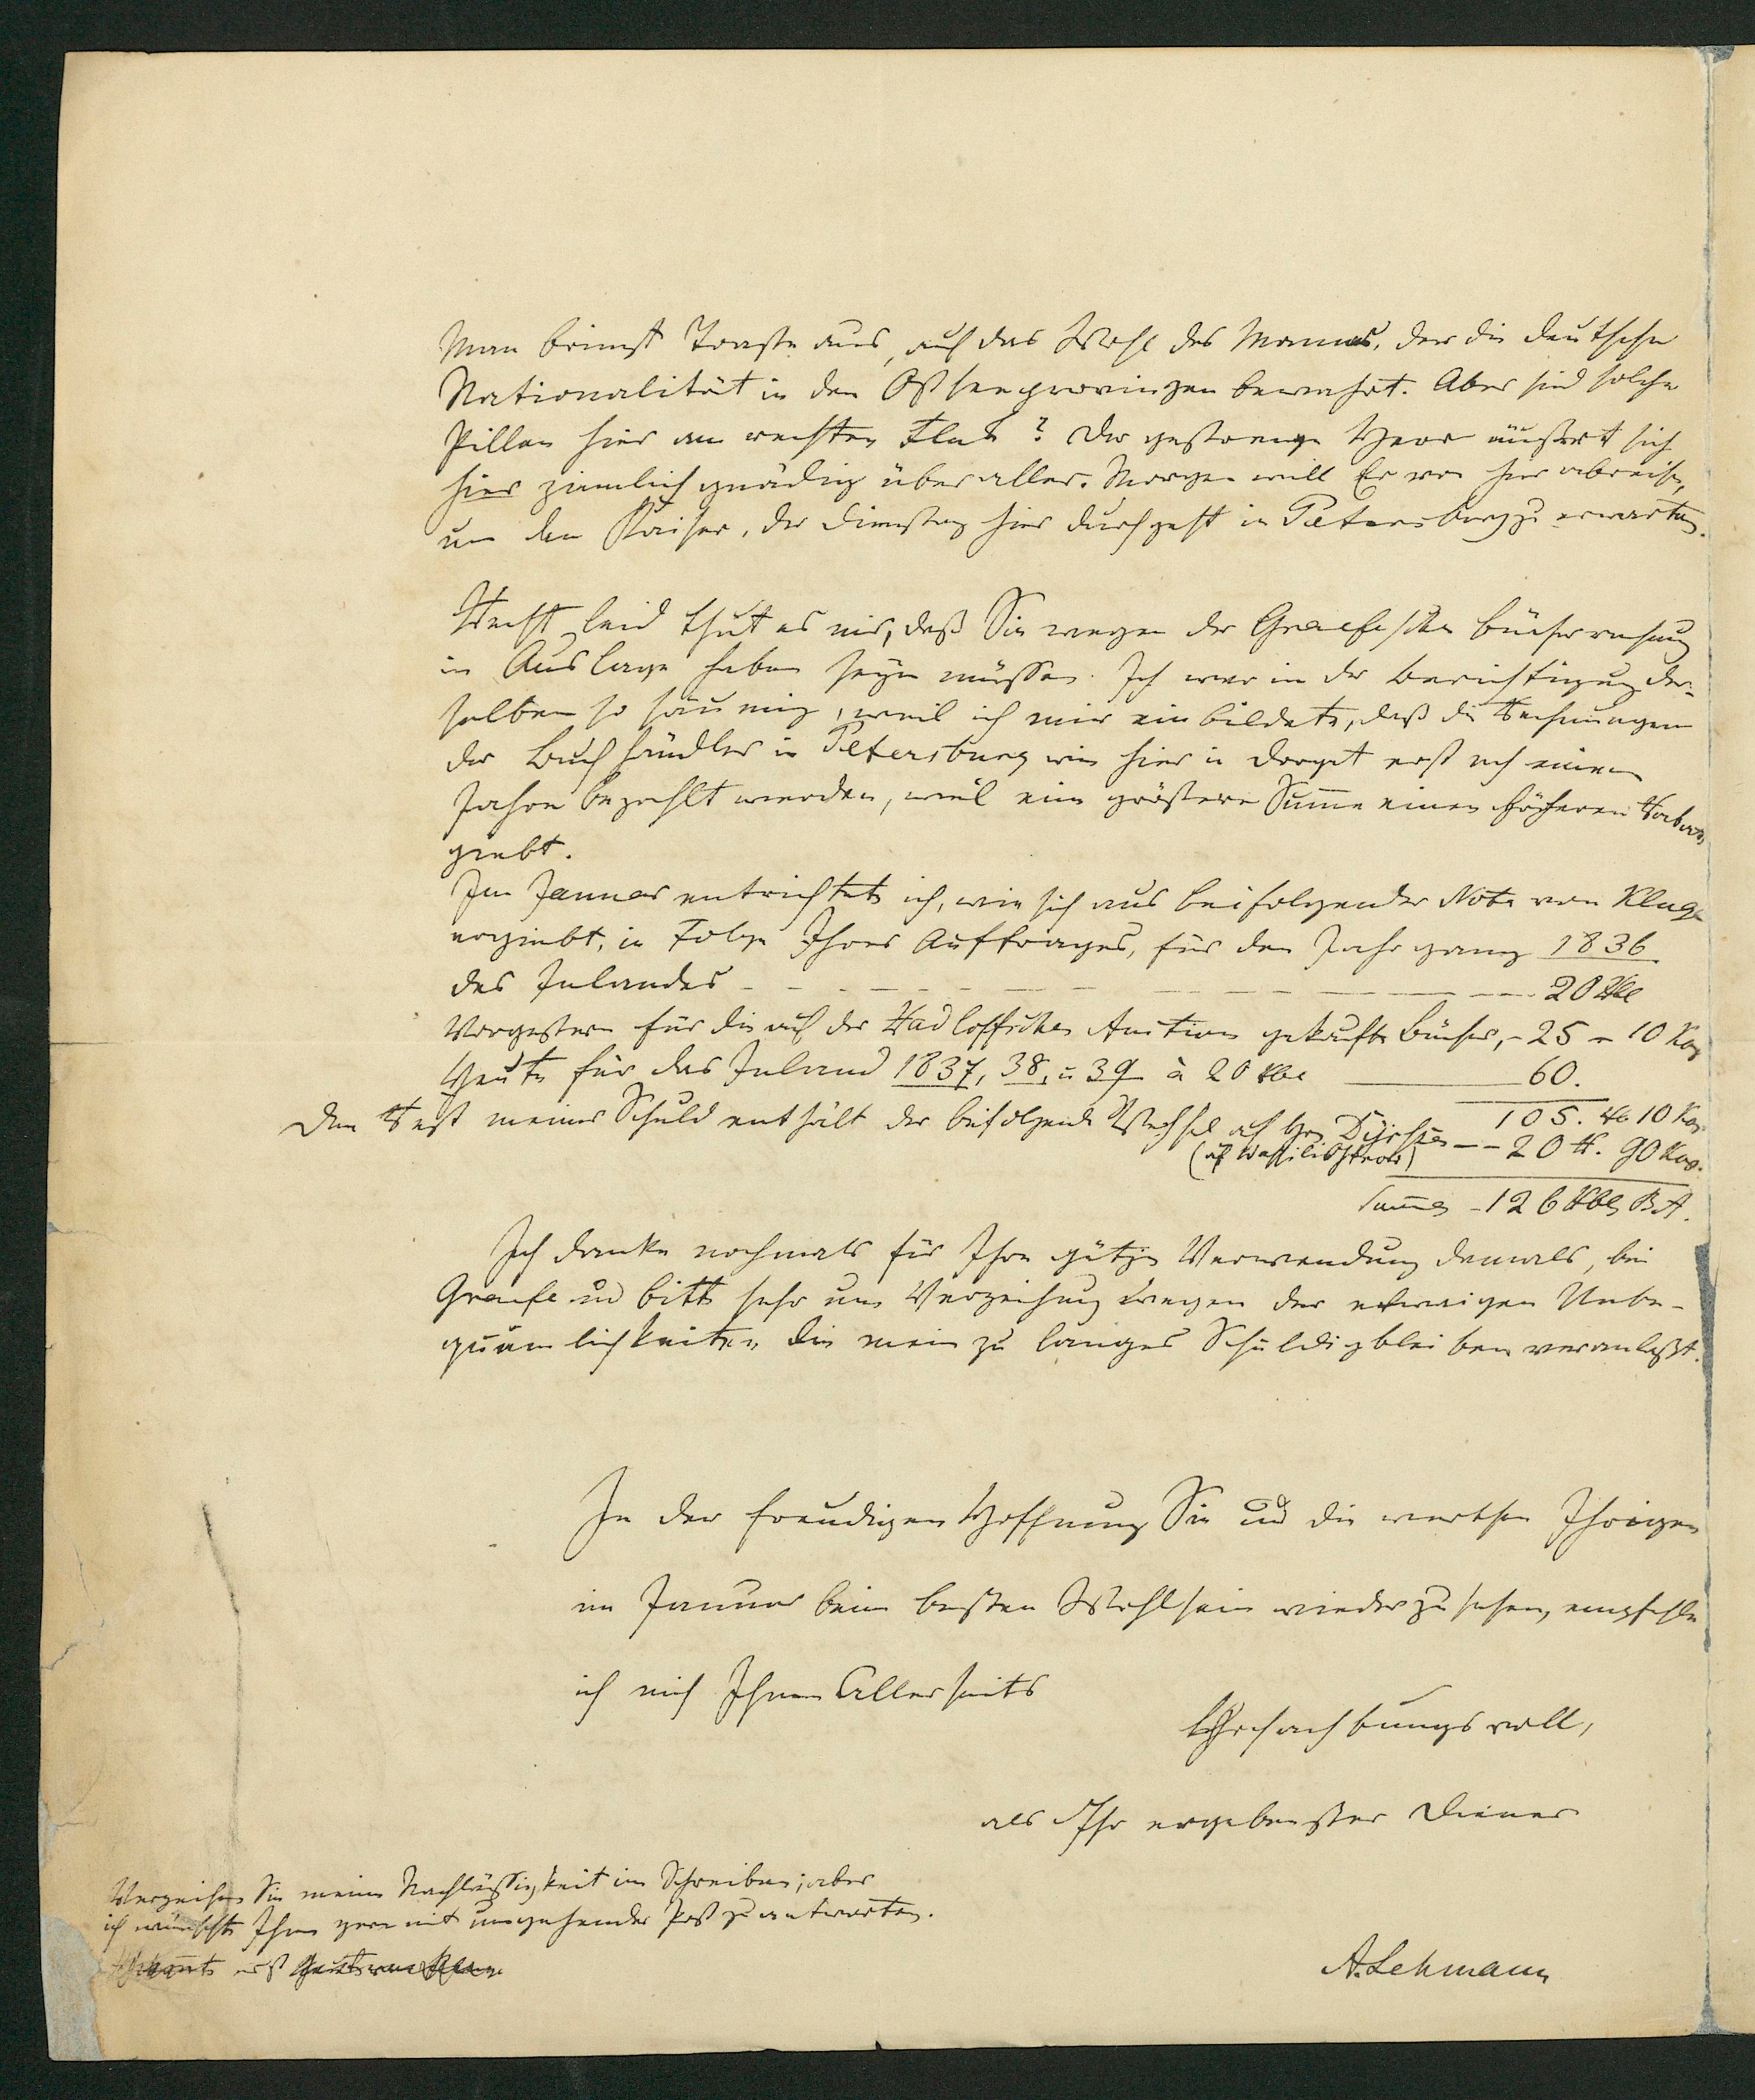 Man bringt Toaste aus, auf das Wohl des Mannes, der die deutsche
Nationalität in den Ostseeprovinzen bewahrt. Aber sind solche
Pillen hier am rechten Fleck? Der gestrenge Herr äußert sich
hier ziemlich gnädig über alles. Morgen will Er von hier abreisen,
um den Kaiser, der Dienstag hier durchgeht in Petersburg zu erwarten.
Recht leid thut es mir, daß Sie wegen der Graefeschen Bücherrechnung
in Auslage haben seyn müssen. Ich war in der Berichtigung der-
selben so säumig, weil ich mir einbildete, daß die Rechnungen
der Buchhändler in Petersburg wie hier in Dorpat erst nach einem
Jahre bezahlt werden, weil eine größere Summe einen höheren Rabatt
giebt.
Im Januar entrichtete ich, wie sich aus beifolgender Note von Kluge
ergiebt, in Folge Ihres Auftrages, für den Jahrgang 1836
des Inlandes - - - - - 20 Rbl
Vorgestern für die auf der Hadloffschen Auction gekauften Bücher, - 25 - 10 Kop
Heute für das Inland 1837, 38, u 39 à 20 Rbl — 60.
105. R 10 Kop.
Den Rest meiner Schuld enthält der beifolgende Wechsel auf Hrn — 20 R. 90 Kop.
(auf Wassiliostrow)
Summe - 126 Rbl B.A.
Ich danke nochmals für Ihre gütige Verwendung damals, bei
Graefe und bitte sehr um Verzeihung wegen der etwaigen Unbe-
quämlichkeiten die mein zu langes Schuldigbleiben veranlaßt.
In der freudigen Hoffnung Sie und die werthen Ihrigen
im Januar beim besten Wohlsein wieder zu sehen, empfehle
ich mich Ihnen Allerseits
Hochachtungsvoll,
als Ihr ergebenster Diener
A. Lehmann
Verzeihen Sie meine Nachläßigkeit im Schreiben; aber
ich wünschte Ihnen gern mit umgehender Post zu antworten.
erst